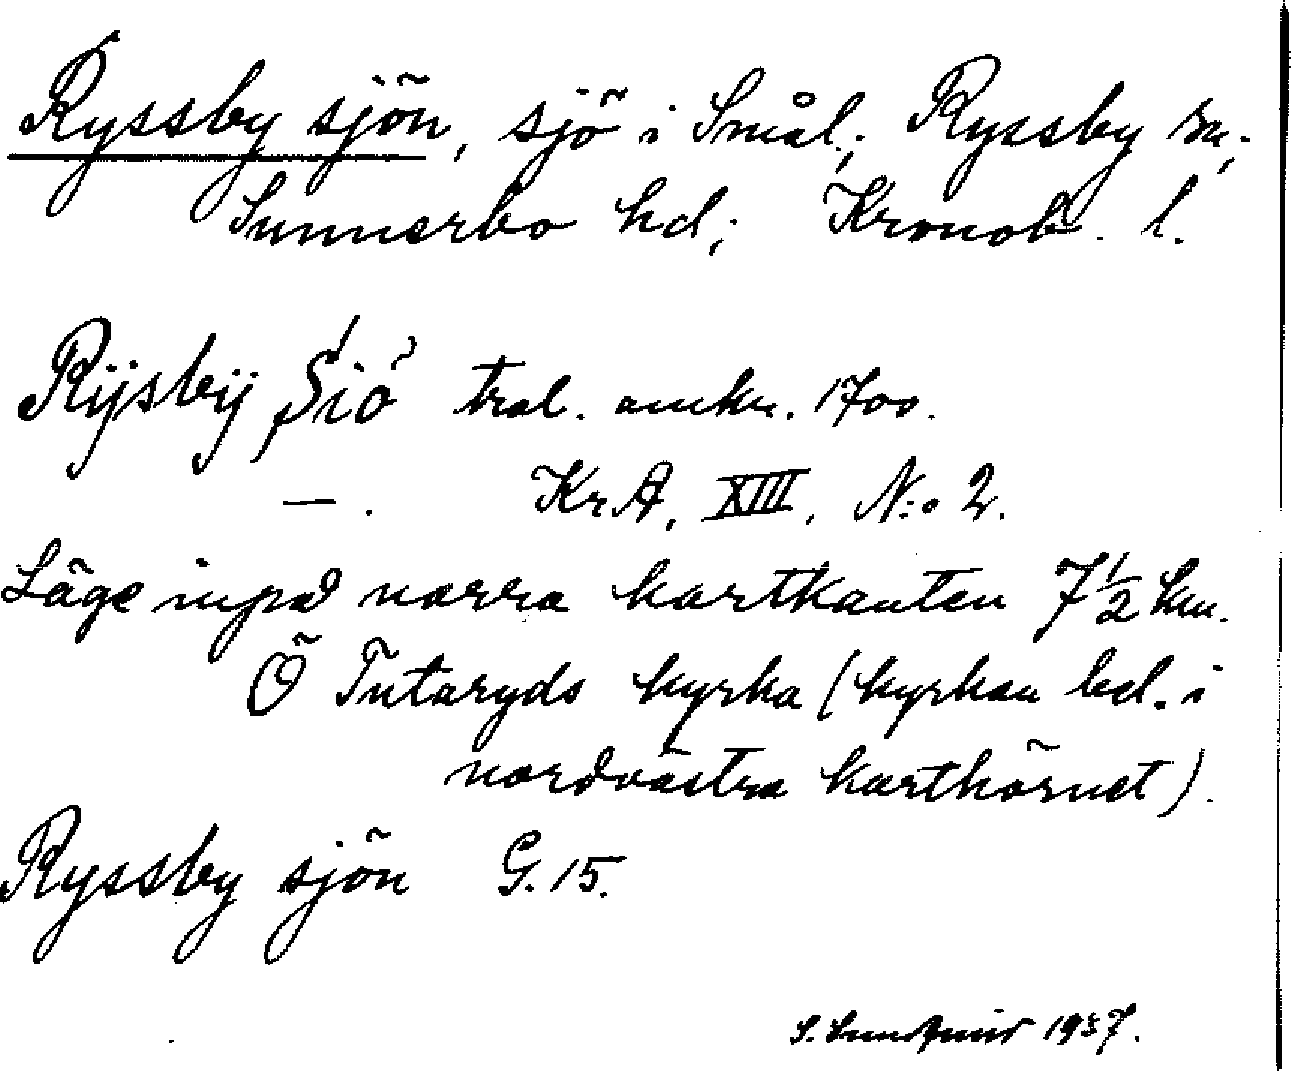 Ryssby sjön, sjö i Smål.; Ryssby sn.;
Sunnerbo hd; Kronob. l.
Rÿsbÿ Siö tral. omkr. 1700.
— . KrA, XIII, N:o 2.
Läge inpå norra kartkanten 7½ km.
Ö Tutaryds kyrka (kyrkan bel. i
nordvästra karthörnet).
Ryssby sjön G. 15.
S. Lundquist 1937.